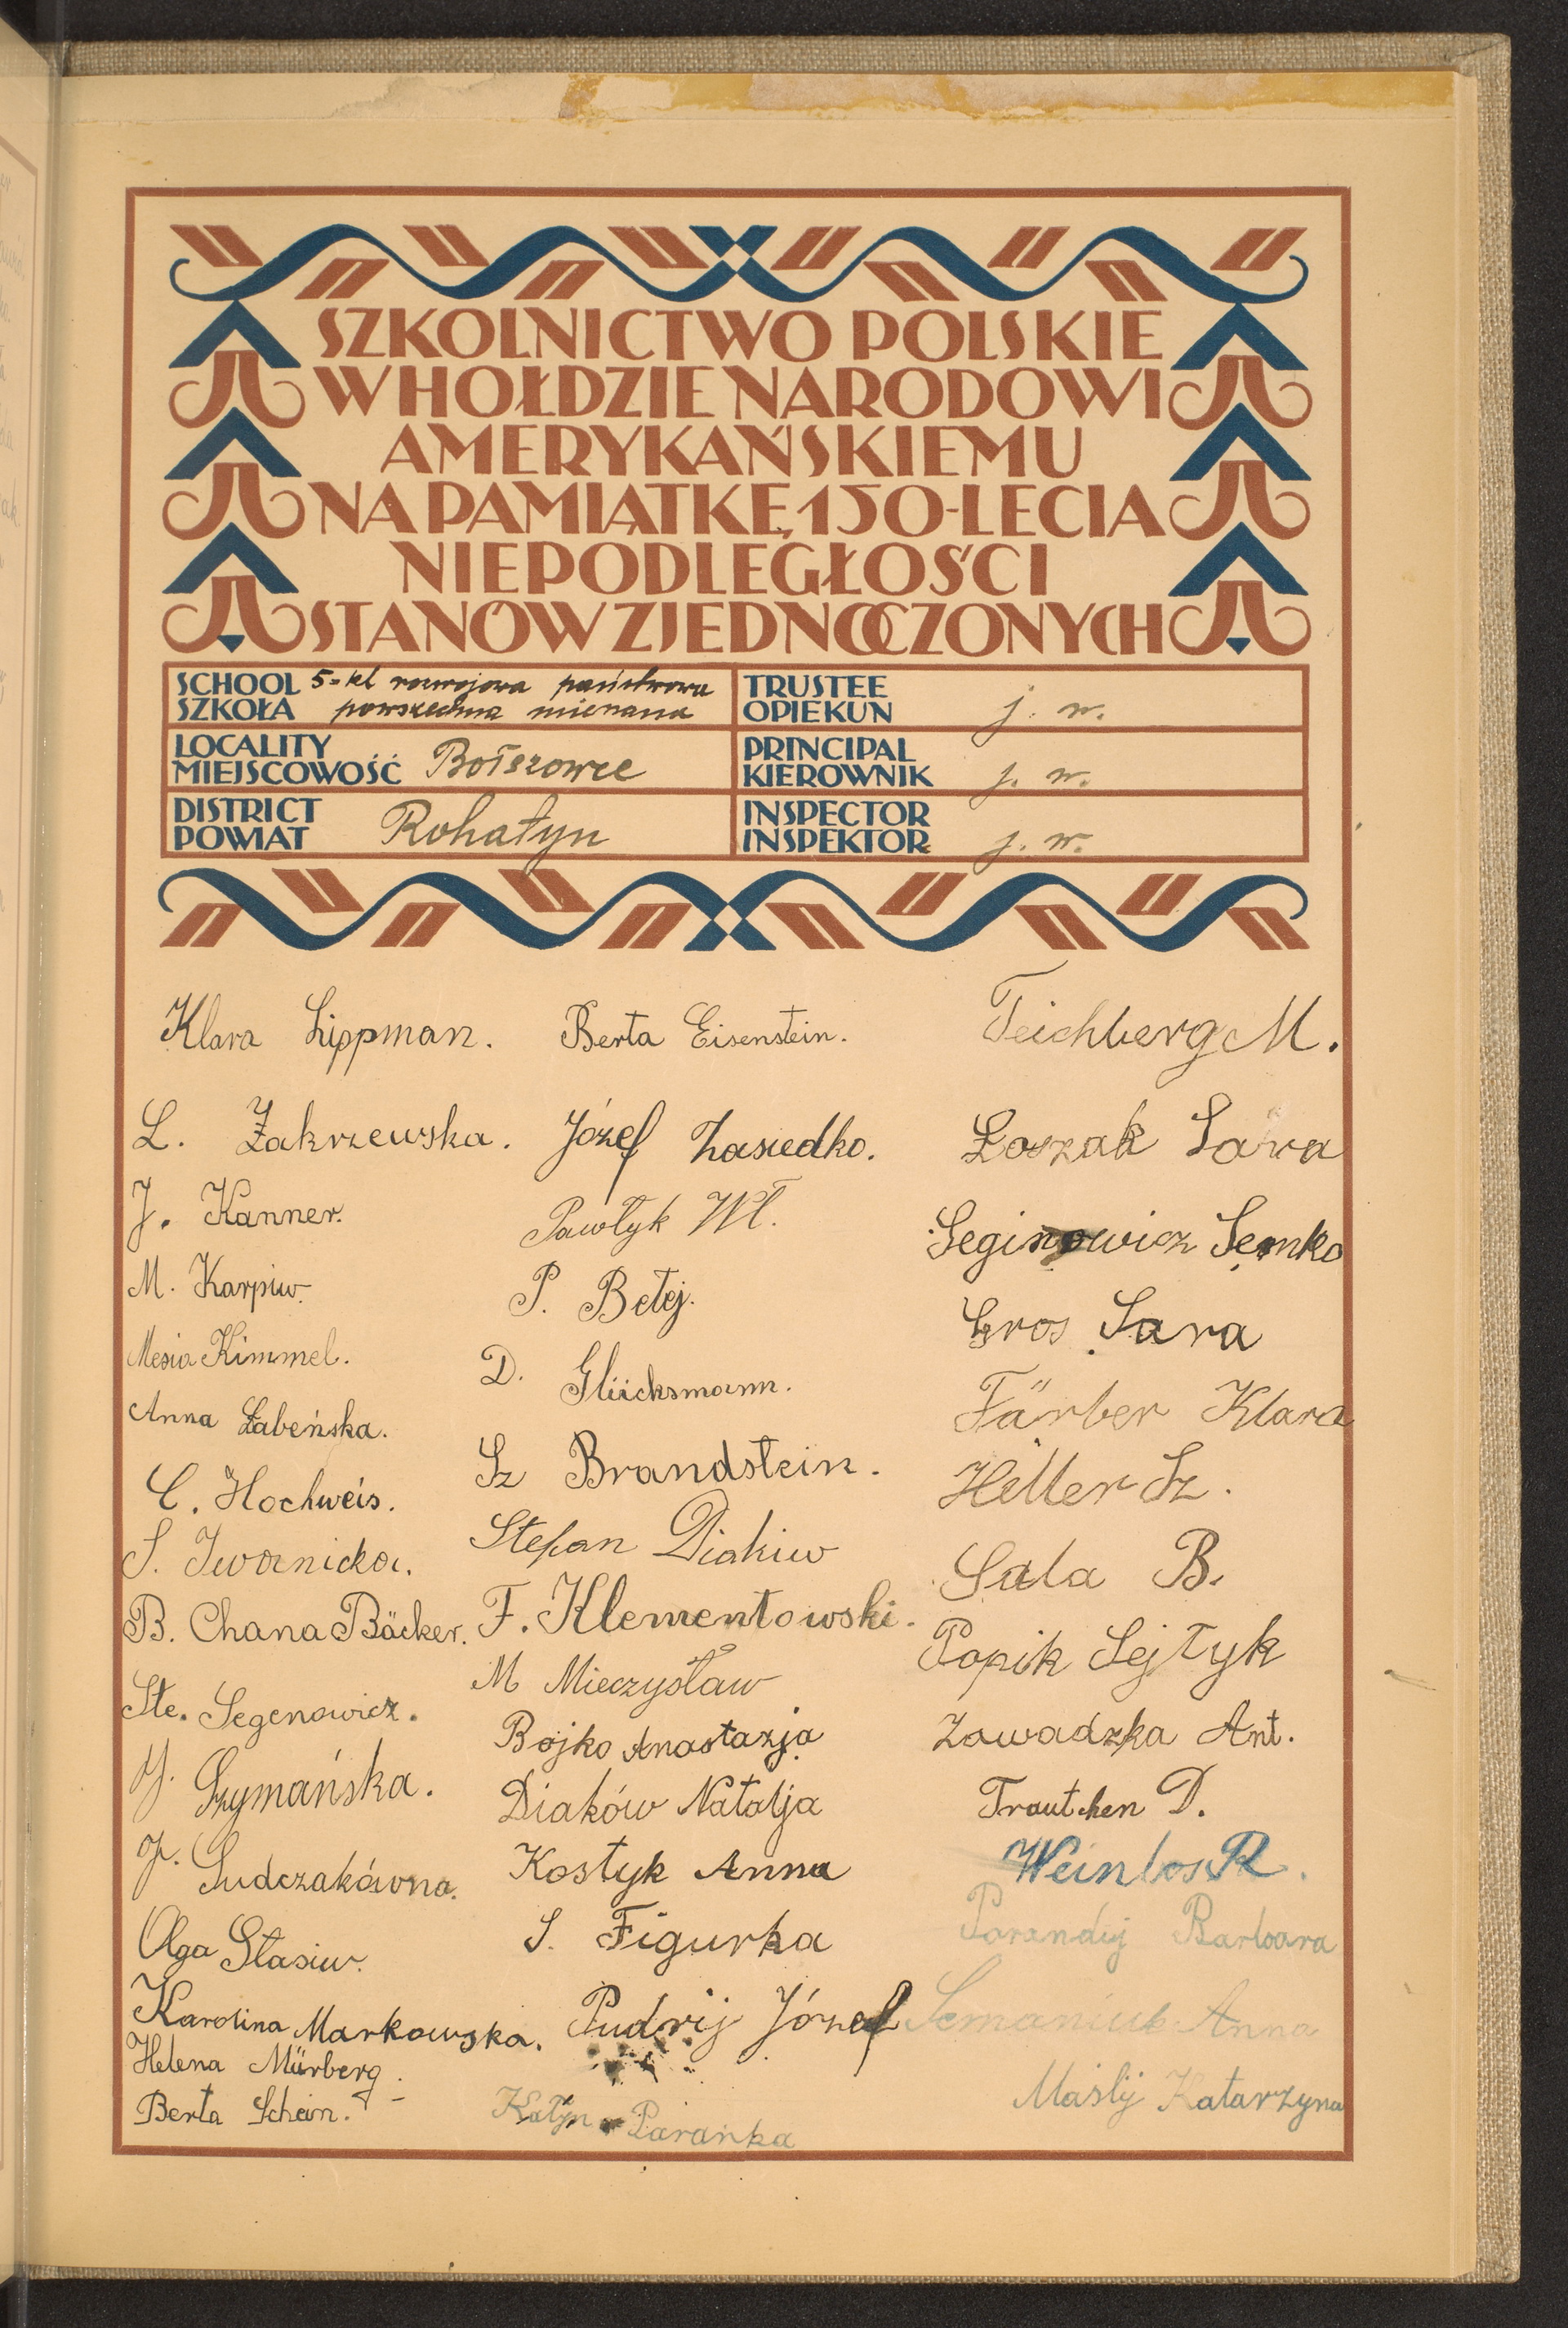 SZKOLNICTWO POLSKIE
W HOŁDZIE NARODOWI
AMERYKAŃSKIEMU
NA PAMIĄTKĘ 150-LECIA
NIEPODLEGŁOŚCI
STANÓW ZJEDNOCZONYCH
SCHOOL
SZKOŁA
5-kl rozwojowa państwowa
powszechna mieszana
TRUSTEE
OPIEKUN
j. w.
LOCALITY
MIEJSCOWOŚĆ
Bołszowce
PRINCIPAL
KIEROWNIK
j. w.
DISTRICT
POWIAT
Rohatyn
INSPECTOR
INSPEKTOR
j. w.
Klara Lippman.
L. Zakrzewska.
J. Kanner.
M. Karpiw.
Mesia Kimmel.
Anna Łabeńska.
C. Hochweis.
S. Iwanicka.
B. Chana Bäcker.
Ste. Segenowicz.
J. Szymańska.
J. Sudczakówna.
Olga Stasiw.
Karolina Markowska.
Helena Mürberg.
Berta Schein.
Berta Eisenstein.
Józef Zasiedko.
Pawłyk Wł.
P. Bełej.
D. Glücksmann.
Sz Brandstein.
Stefan Diakiw
F. Klementowski.
M Mieczysław
Bojko Anastazja
Diaków Natalja
Kostyk Anna
S. Figurka
Pudrij Józef
Paranka
Teichberg M.
Łoszak Sara
Seginowicz Semko
Gros Sara
Färber Klara
Hiller Sz.
Sala B.
Popik Sejłyk
Zawadzka Ant.
Trautchen D.
Weinlos R.
Parandij Barbara
Semaniuk Anna
Maslij Katarzyna